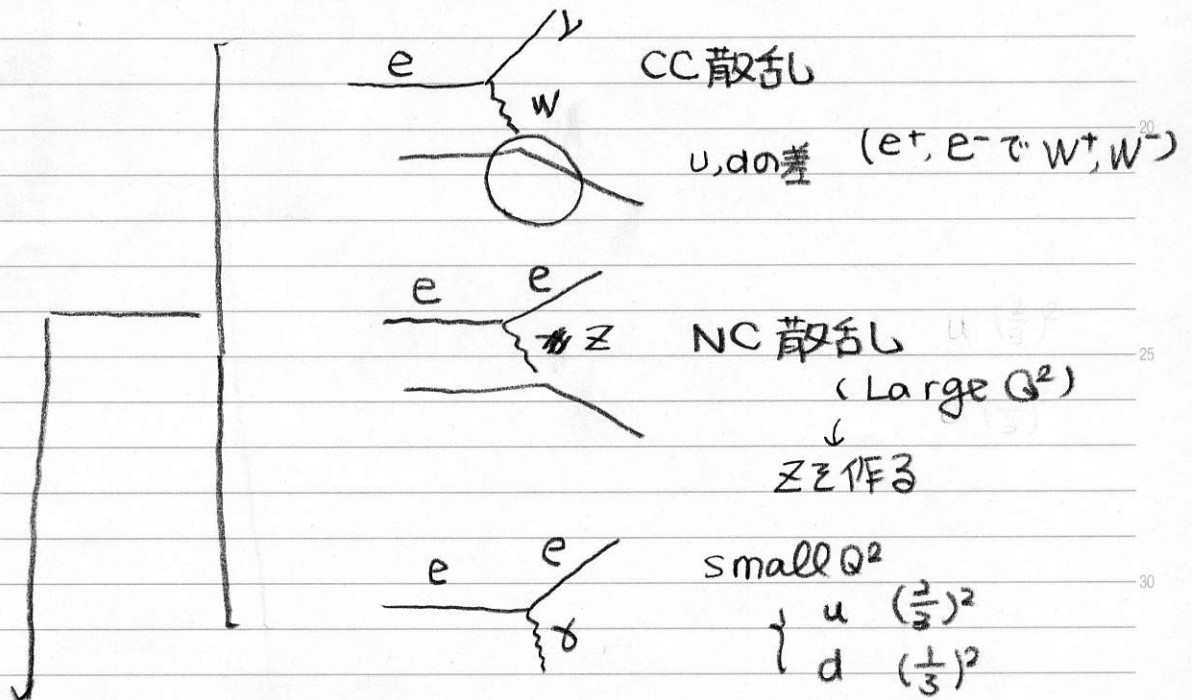 ν
e CC散乱
W
20
u,dの差 (e⁺, e⁻で W⁺, W⁻)
e e
Z NC散乱
25
(Large Q²)
↓
Zを作る
e e small Q²
30
γ { u (2/3)²
d (1/3)²